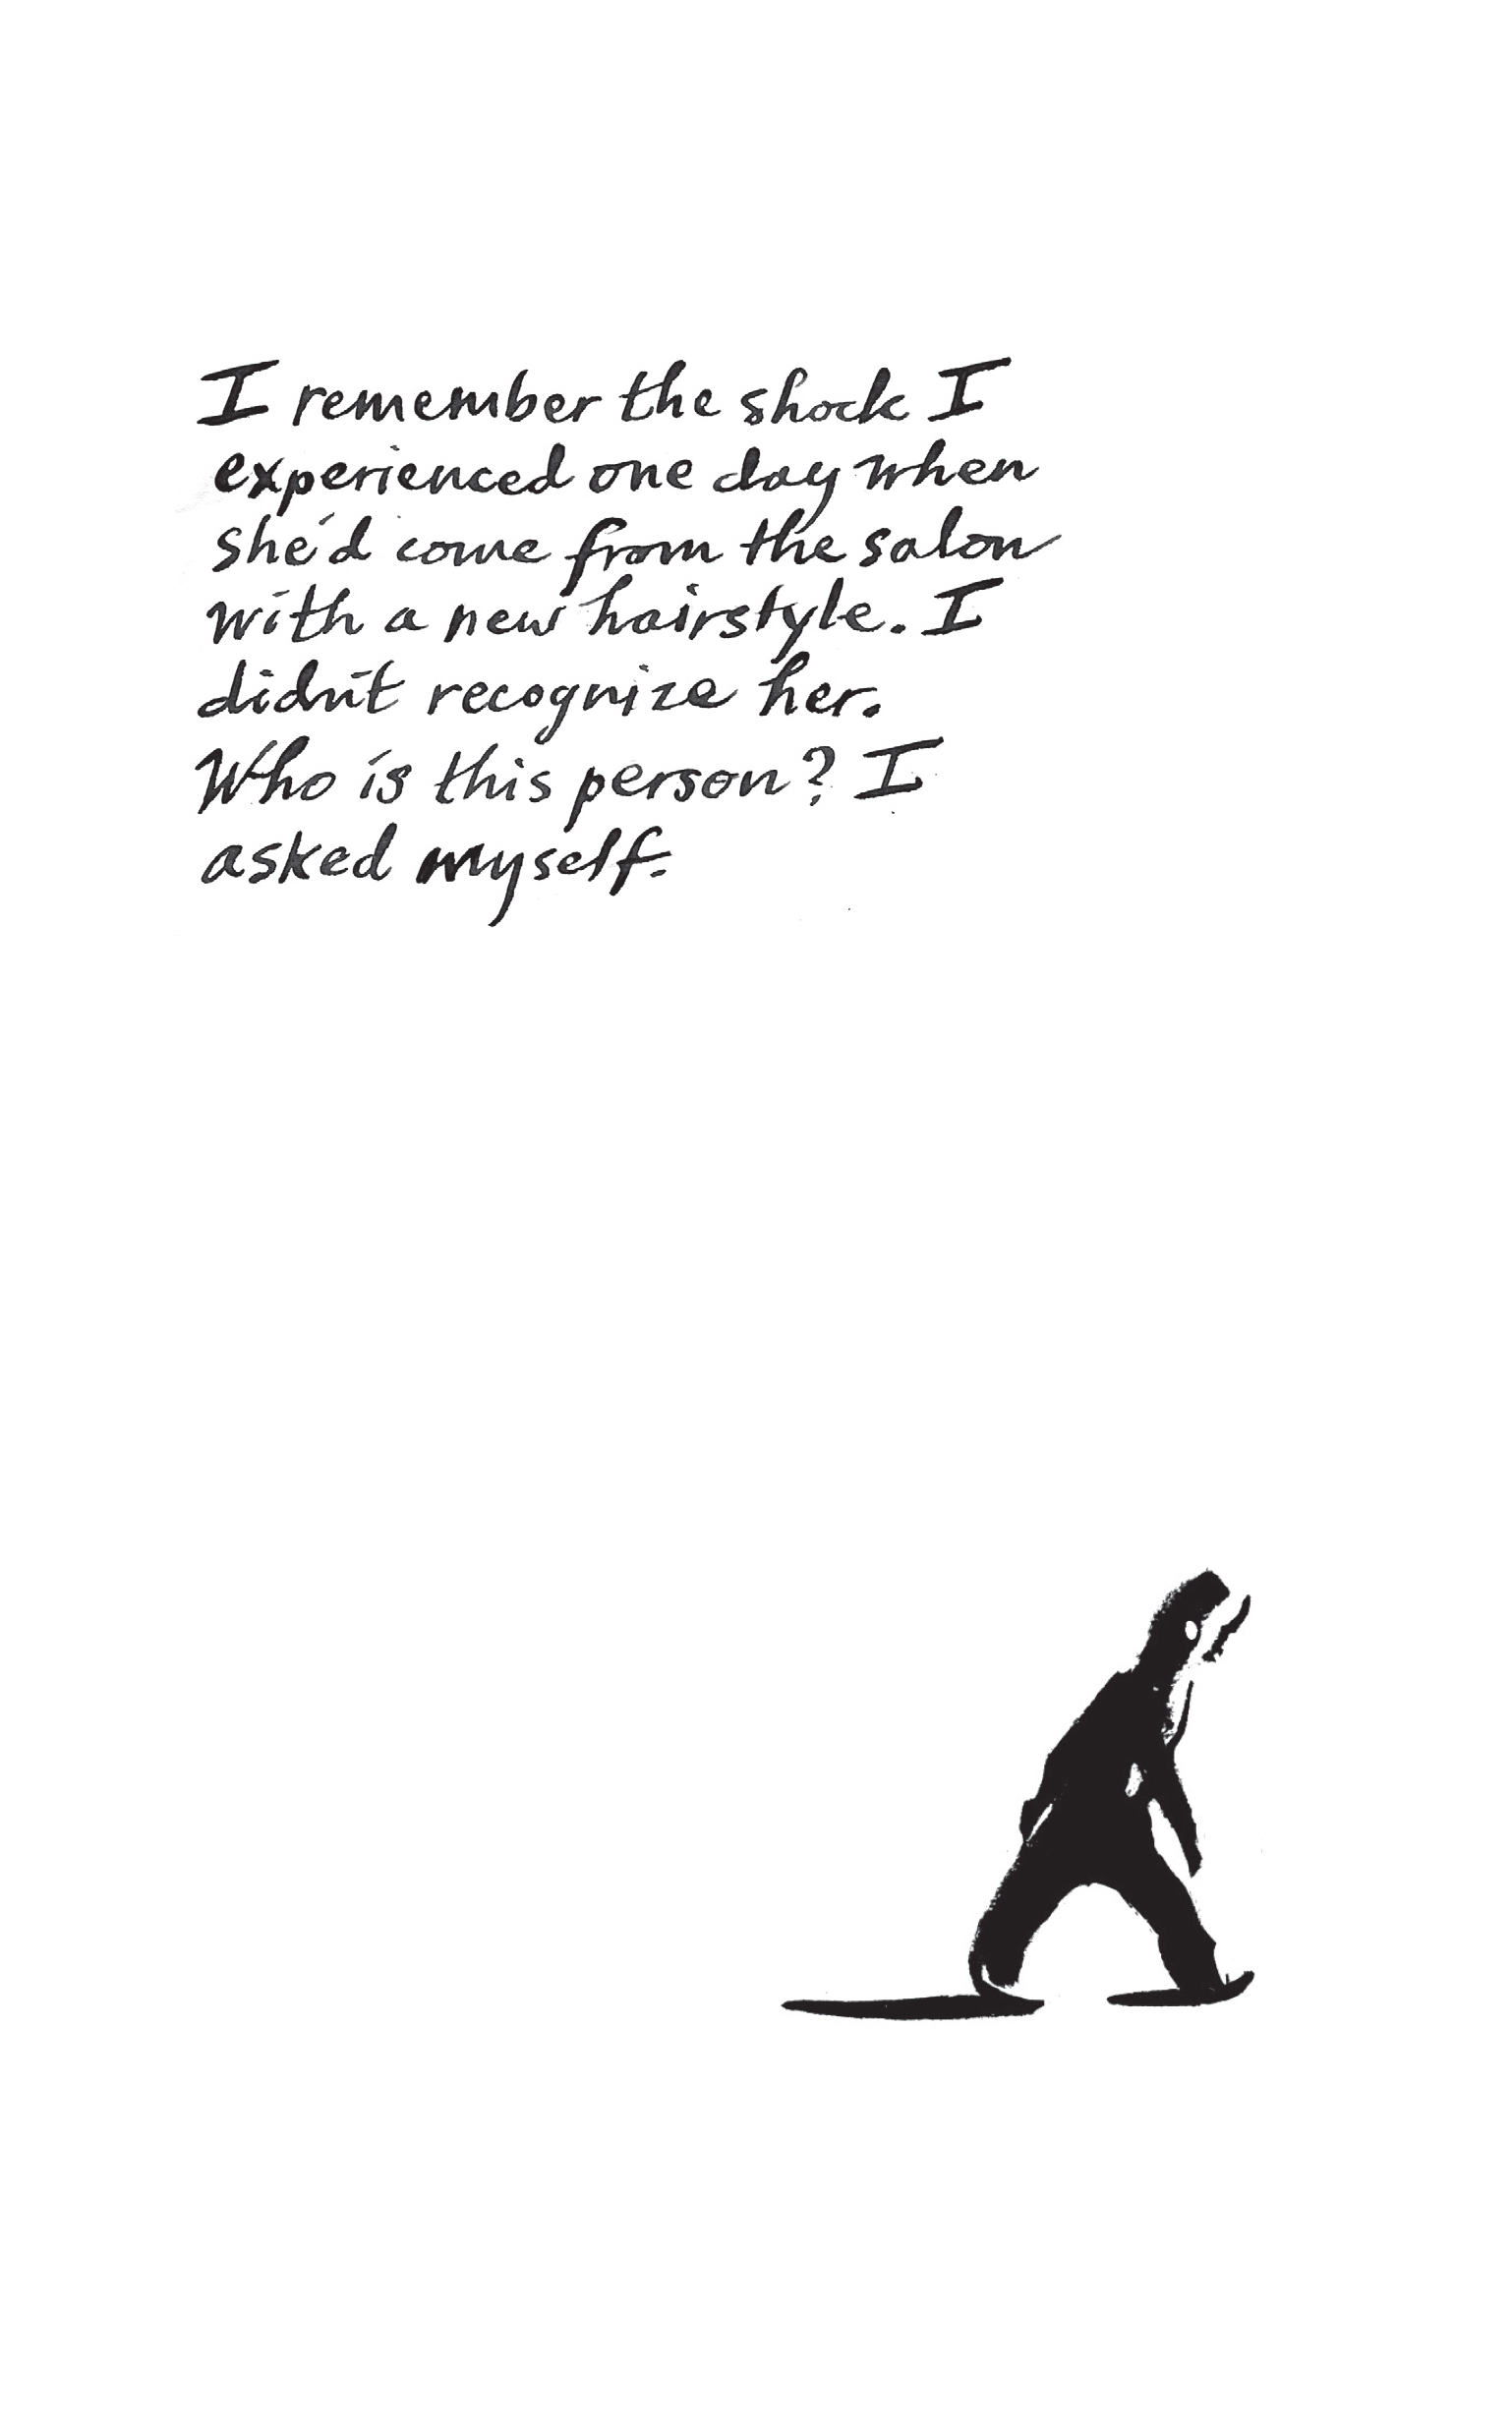 I remember the shock I
experienced one day when
she'd come from the salon
with a new hairstyle. I
didn't recognize her.
Who is this person? I
asked myself.